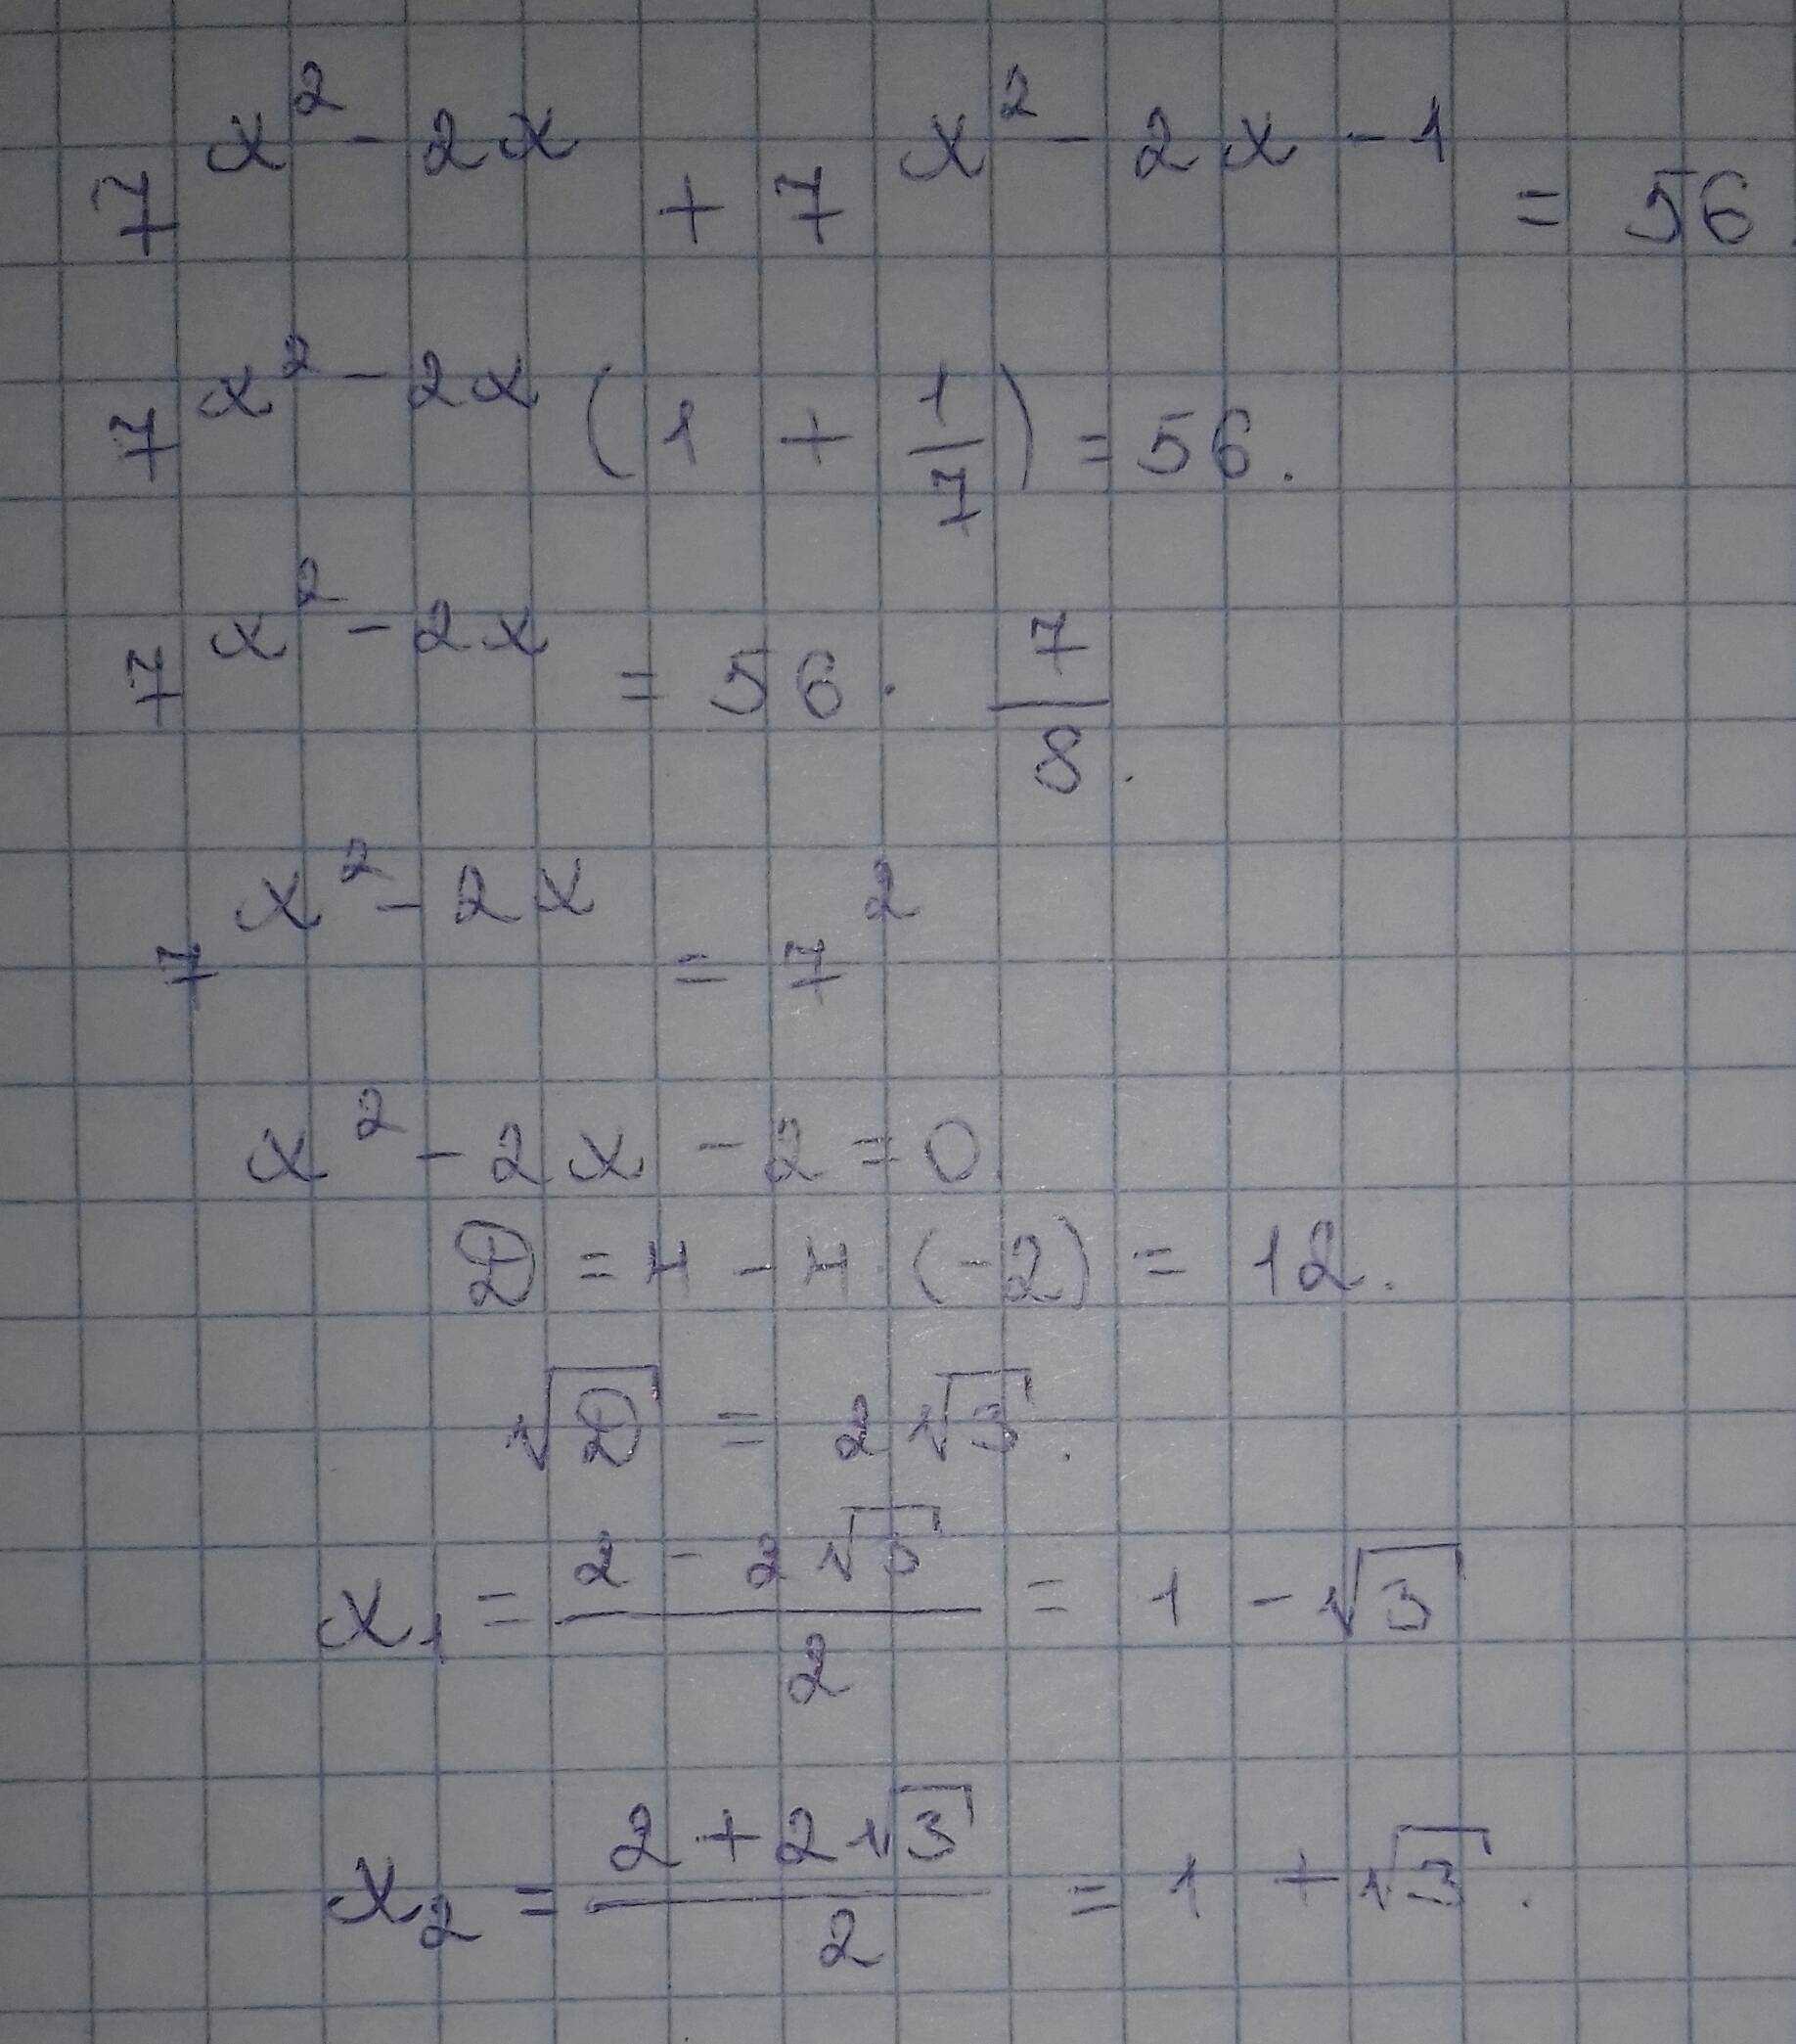 7^(x^2 - 2x) + 7^(x^2 - 2x - 1) = 56.
7^(x^2 - 2x) (1 + 1/7) = 56.
7^(x^2 - 2x) = 56 · 7/8.
7^(x^2 - 2x) = 7^2
x^2 - 2x - 2 = 0.
D = 4 - 4 · (-2) = 12.
√D = 2√3.
x_1 = (2 - 2√3)/2 = 1 - √3
x_2 = (2 + 2√3)/2 = 1 + √3.